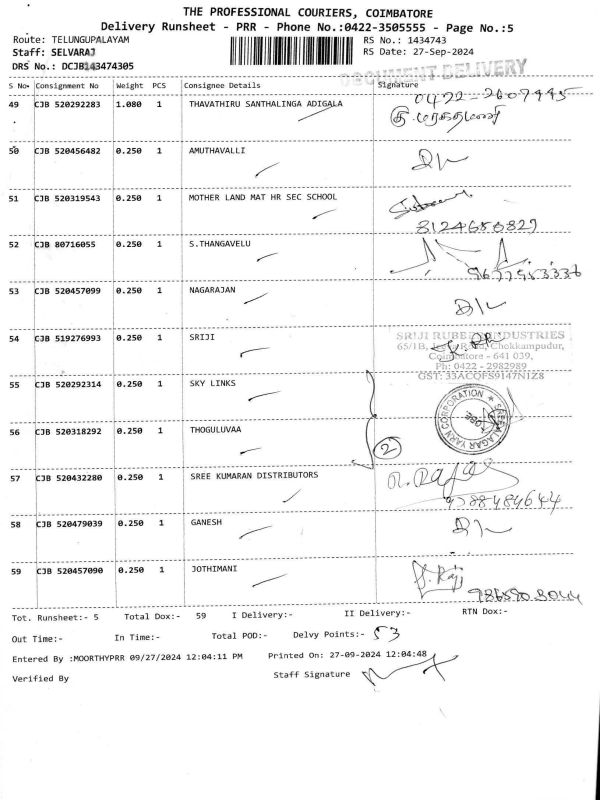 THE PROFESSIONAL COURIERS, COIMBATORE
Delivery Runsheet - PRR - Phone No.:0422-3505555 - Page No.:5
Route: TELUNGUPALAYAM RS No.: 1434743
Staff: SELVARAJ RS Date: 27-Sep-2024
DRS No.: DCJB143474305
DOCUMENT DELIVERY
S No. Consignment No Weight PCS Consignee Details Signature
49 CJB 520292283 1.080 1 THAVATHIRU SANTHALINGA ADIGALA 0422-2607995
50 CJB 520456482 0.250 1 AMUTHAVALLI D/L
51 CJB 520319543 0.250 1 MOTHER LAND MAT HR SEC SCHOOL
52 CJB 80716055 0.250 1 S.THANGAVELU
53 CJB 520457099 0.250 1 NAGARAJAN D/L
54 CJB 519276993 0.250 1 SRIJI
SRIJI RUBBER INDUSTRIES
65/1B, Road, Chokkampudur,
Coimbatore - 641 039,
Ph: 0422 - 2982989
GST: 33ACOFS9147N1Z8
55 CJB 520292314 0.250 1 SKY LINKS
YARN CORPORATION
56 CJB 520318292 0.250 1 THOGULUVAA
2
57 CJB 520432280 0.250 1 SREE KUMARAN DISTRIBUTORS
58 CJB 520479039 0.250 1 GANESH D/L
59 CJB 520457090 0.250 1 JOTHIMANI
Tot. Runsheet:- 5 Total Dox:- 59 I Delivery:- II Delivery:- RTN Dox:-
Out Time:- In Time:- Total POD:- Delvy Points:- 53
Entered By :MOORTHYPRR 09/27/2024 12:04:11 PM Printed On: 27-09-2024 12:04:48
Verified By Staff Signature